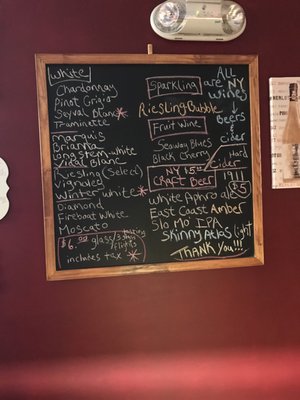 White
Chardonnay
Pinot Grigio
Seyval Blanc *
Traminette
Marquis
Brianna
Longstem White
Vidal Blanc
Riesling (Select)
Vignoles
Winter White *
Diamond
Fireboat White
Moscato
$6.00 glass/3 tasting flights
includes tax *
Sparkling
Riesling Bubble
Fruit Wine
Seaway Blues
Black Cherry
NY 15%
CRAFT BEER
White Aphro
East Coast Amber
Slo Mo IPA
Skinny Atlas Light
THANK YOU!!!
All
are NY
Wines
↓
Beers
&
Cider
Hard
Cider
1911
$5